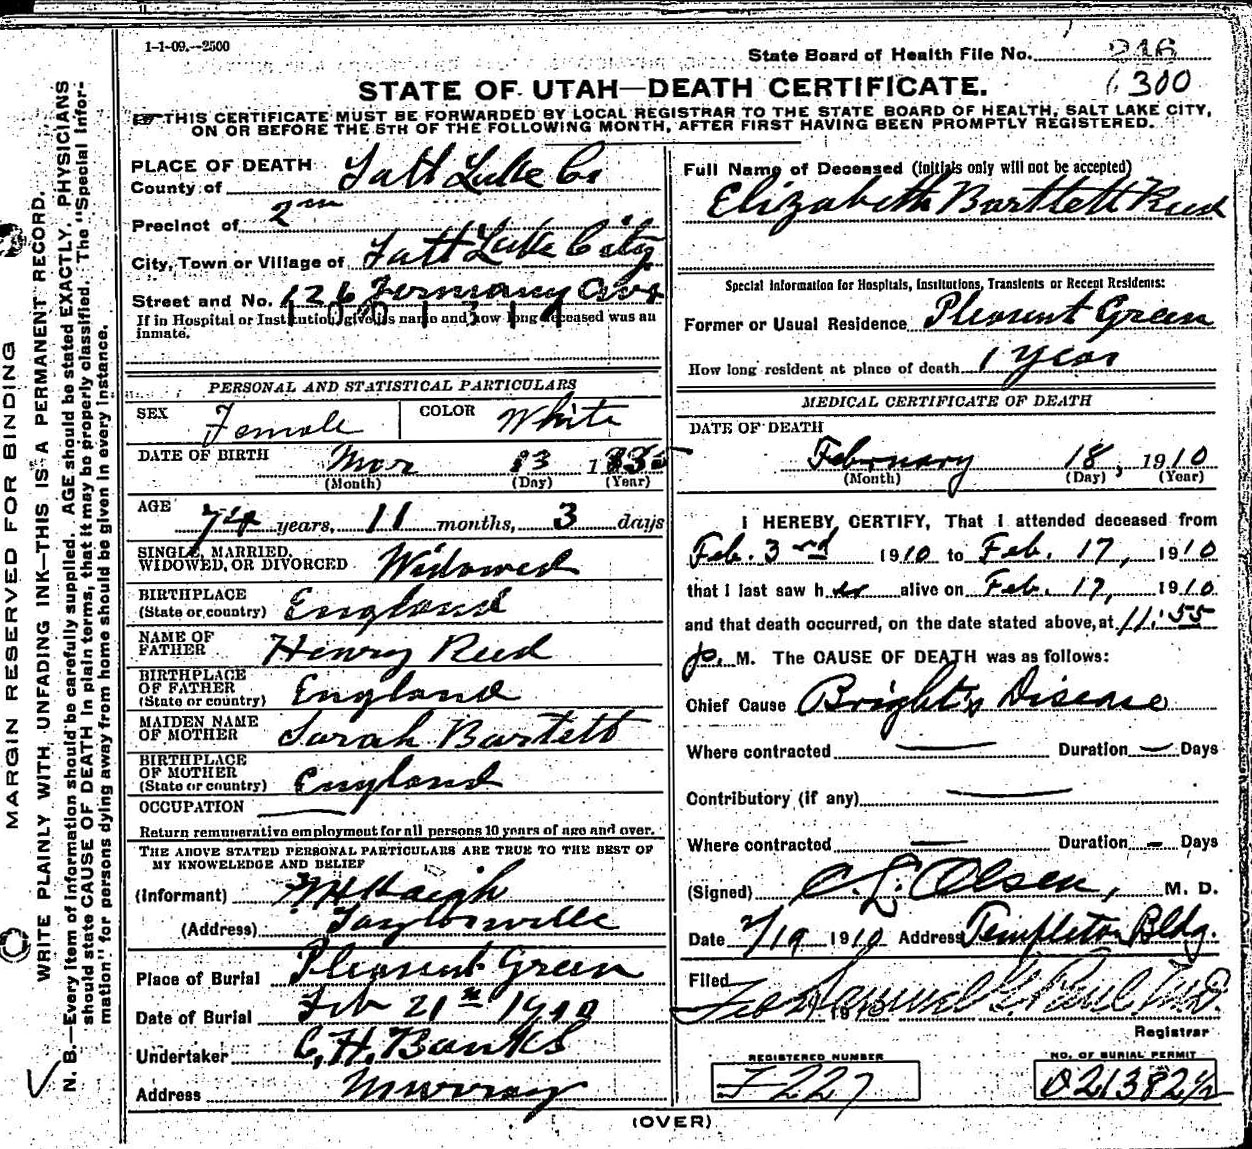 1-1-09.--2500
State Board of Health File No. 246
300
STATE OF UTAH—DEATH CERTIFICATE.
THIS CERTIFICATE MUST BE FORWARDED BY LOCAL REGISTRAR TO THE STATE BOARD OF HEALTH, SALT LAKE CITY,
ON OR BEFORE THE 5TH OF THE FOLLOWING MONTH, AFTER FIRST HAVING BEEN PROMPTLY REGISTERED.
MARGIN RESERVED FOR BINDING
WRITE PLAINLY WITH UNFADING INK—THIS IS A PERMANENT RECORD.
N. B.—Every item of information should be carefully supplied. AGE should be stated EXACTLY. PHYSICIANS
should state CAUSE OF DEATH in plain terms, that it may be properly classified. The "Special Infor-
mation" for persons dying away from home should be given in every instance.
PLACE OF DEATH
County of Salt Lake Co
Precinct of 2nd
City, Town or Village of Salt Lake City
Street and No. 126 Ave
If in Hospital or Institution, give its name and how long deceased was an
inmate.
1001314
PERSONAL AND STATISTICAL PARTICULARS
SEX Female COLOR White
DATE OF BIRTH Mar 13 1835
(Month) (Day) (Year)
AGE 74 years, 11 months, 3 days
SINGLE, MARRIED,
WIDOWED, OR DIVORCED Widowed
BIRTHPLACE
(State or country) England
NAME OF
FATHER Henry Reed
BIRTHPLACE
OF FATHER
(State or country) England
MAIDEN NAME
OF MOTHER Sarah Bartett
BIRTHPLACE
OF MOTHER
(State or country) England
OCCUPATION
Return remunerative employment for all persons 10 years of age and over.
THE ABOVE STATED PERSONAL PARTICULARS ARE TRUE TO THE BEST OF
MY KNOWELEDGE AND BELIEF
(Informant) Haigh
(Address) Taylorsville
Place of Burial Pleasent Green
Date of Burial Feb 21st 1910
Undertaker C. H. Banks
Address Murray
Full Name of Deceased (initials only will not be accepted)
Elizabeth Bartlett Reed
Special Information for Hospitals, Institutions, Transients or Recent Residents:
Former or Usual Residence Pleasent Green
How long resident at place of death 1 year
MEDICAL CERTIFICATE OF DEATH
DATE OF DEATH
February 18, 1910
(Month) (Day) (Year)
I HEREBY CERTIFY, That I attended deceased from
Feb. 3rd 1910 to Feb. 17, 1910
that I last saw her alive on Feb. 17, 1910
and that death occurred, on the date stated above, at 11:55
p. M. The CAUSE OF DEATH was as follows:
Chief Cause Bright's Disease
Where contracted — Duration — Days
Contributory (if any) —
Where contracted — Duration — Days
(Signed) C. L. Olsen, M. D.
Date 2/19 1910 Address Templeton Bldg.
Filed Feb 1910 Samuel G. Paul M.D.
Registrar
REGISTERED NUMBER
F 227
NO. OF BURIAL PERMIT
021382½
(OVER)